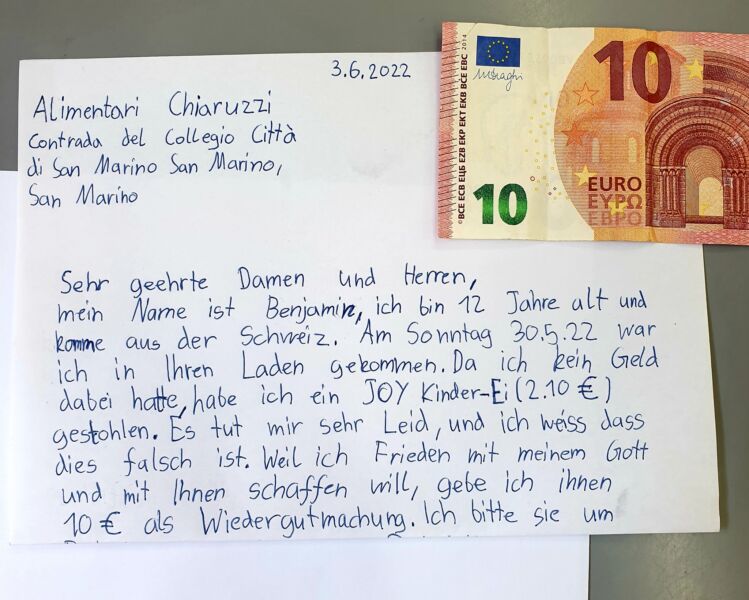 3.6.2022
Alimentari Chiaruzzi
Contrada del Collegio Città
di San Marino San Marino,
San Marino
Sehr geehrte Damen und Herren,
mein Name ist Benjamin, ich bin 12 Jahre alt und
komme aus der Schweiz. Am Sonntag 30.5.22 war
ich in Ihren Laden gekommen. Da ich kein Geld
dabei hatte, habe ich ein JOY Kinder-Ei (2.10 €)
gestohlen. Es tut mir sehr Leid, und ich weiss dass
dies falsch ist. Weil ich Frieden mit meinem Gott
und mit Ihnen schaffen will, gebe ich ihnen
10 € als Wiedergutmachung. Ich bitte sie um
©BCE ECB ЕЦБ EZB EKP EKT EKB BCE EBC 2014
10
10
EURO
ΕΥΡΩ
ЕВРО